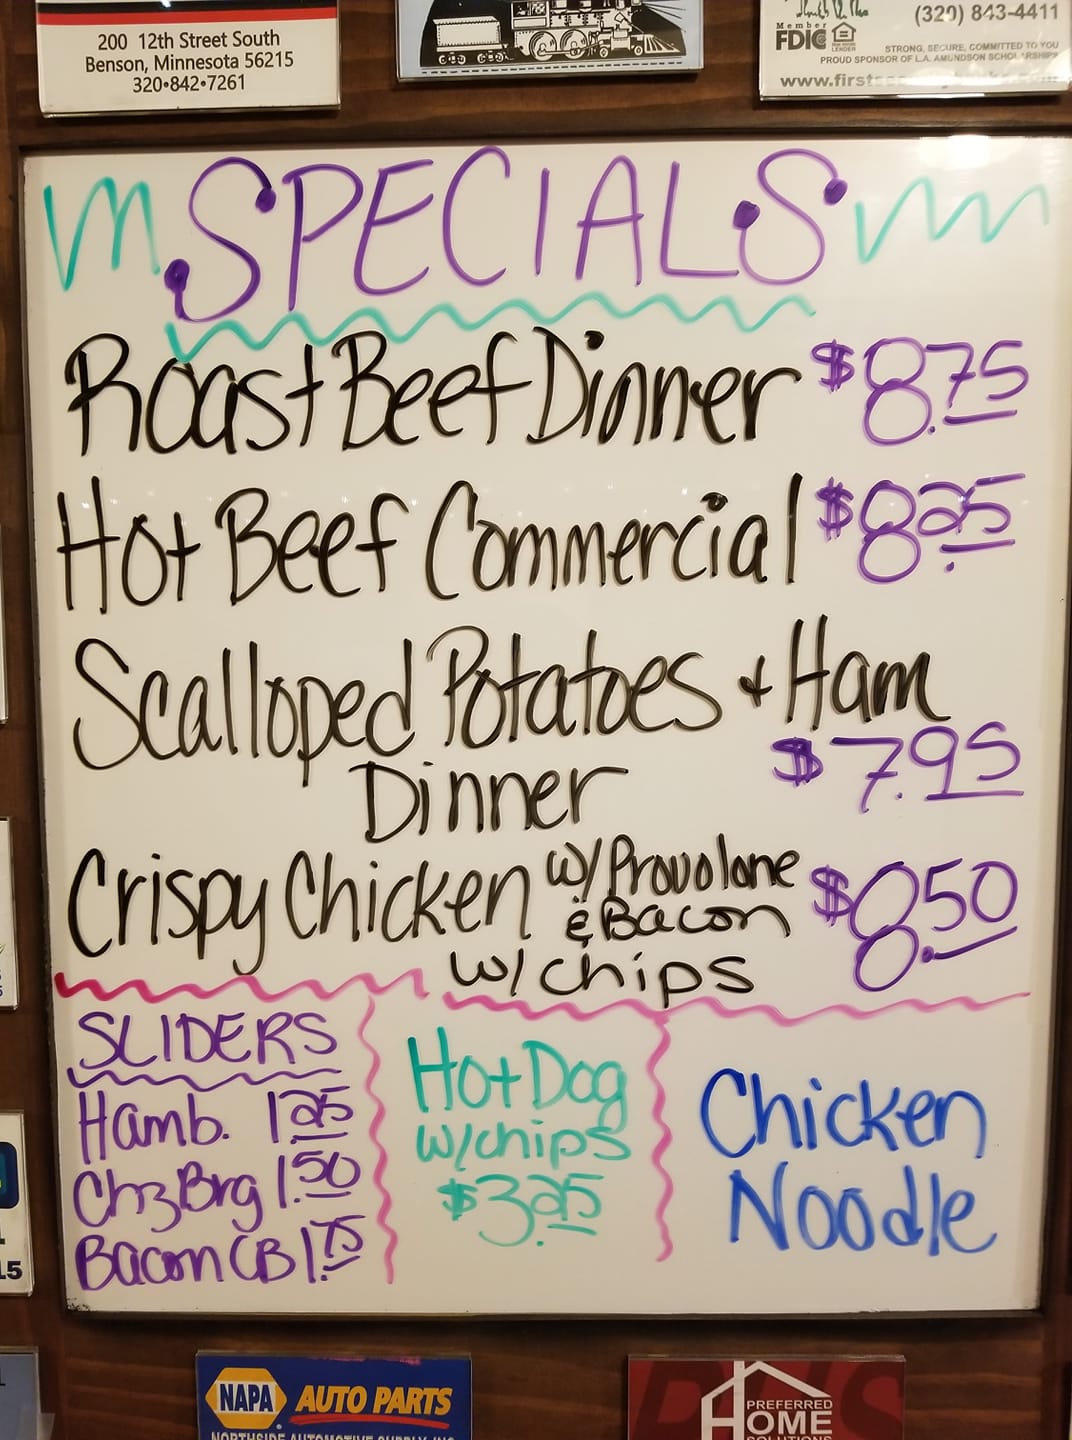 200 12th Street South
Benson, Minnesota 56215
320•842•7261
(320) 843-4411
Member
FDIC
LENDER
STRONG, SECURE, COMMITTED TO YOU
PROUD SPONSOR OF L.A. AMUNDSON SCHOLARSHIPS
SPECIALS
Roast Beef Dinner $8.75
Hot Beef Commercial $8.25
Scalloped Potatoes & Ham
Dinner $7.95
Crispy Chicken w/ Provolone
& Bacon $8.50
w/ chips
SLIDERS
Hamb. 1.25
ChzBrg 1.50
Bacon CB 1.75
Hot Dog
w/chips
$3.25
Chicken
Noodle
NAPA AUTO PARTS
NORTHSIDE AUTOMOTIVE SUPPLY, INC.
PREFERRED
HOME
SOLUTIONS